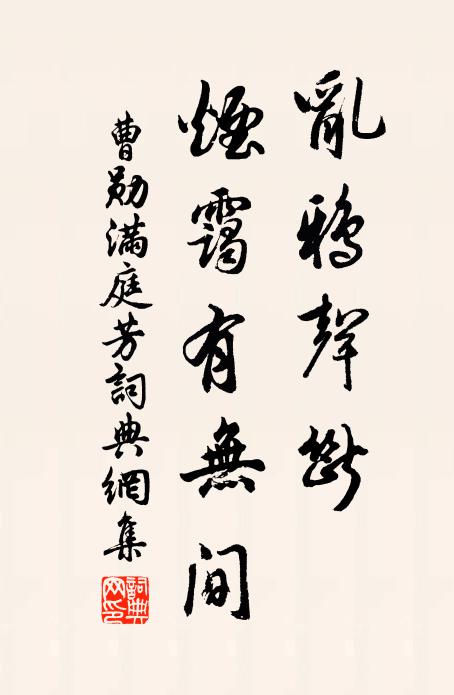 亂鴉聲斷
煙靄有無間
曹勛滿庭芳詞典網集
詞典網印